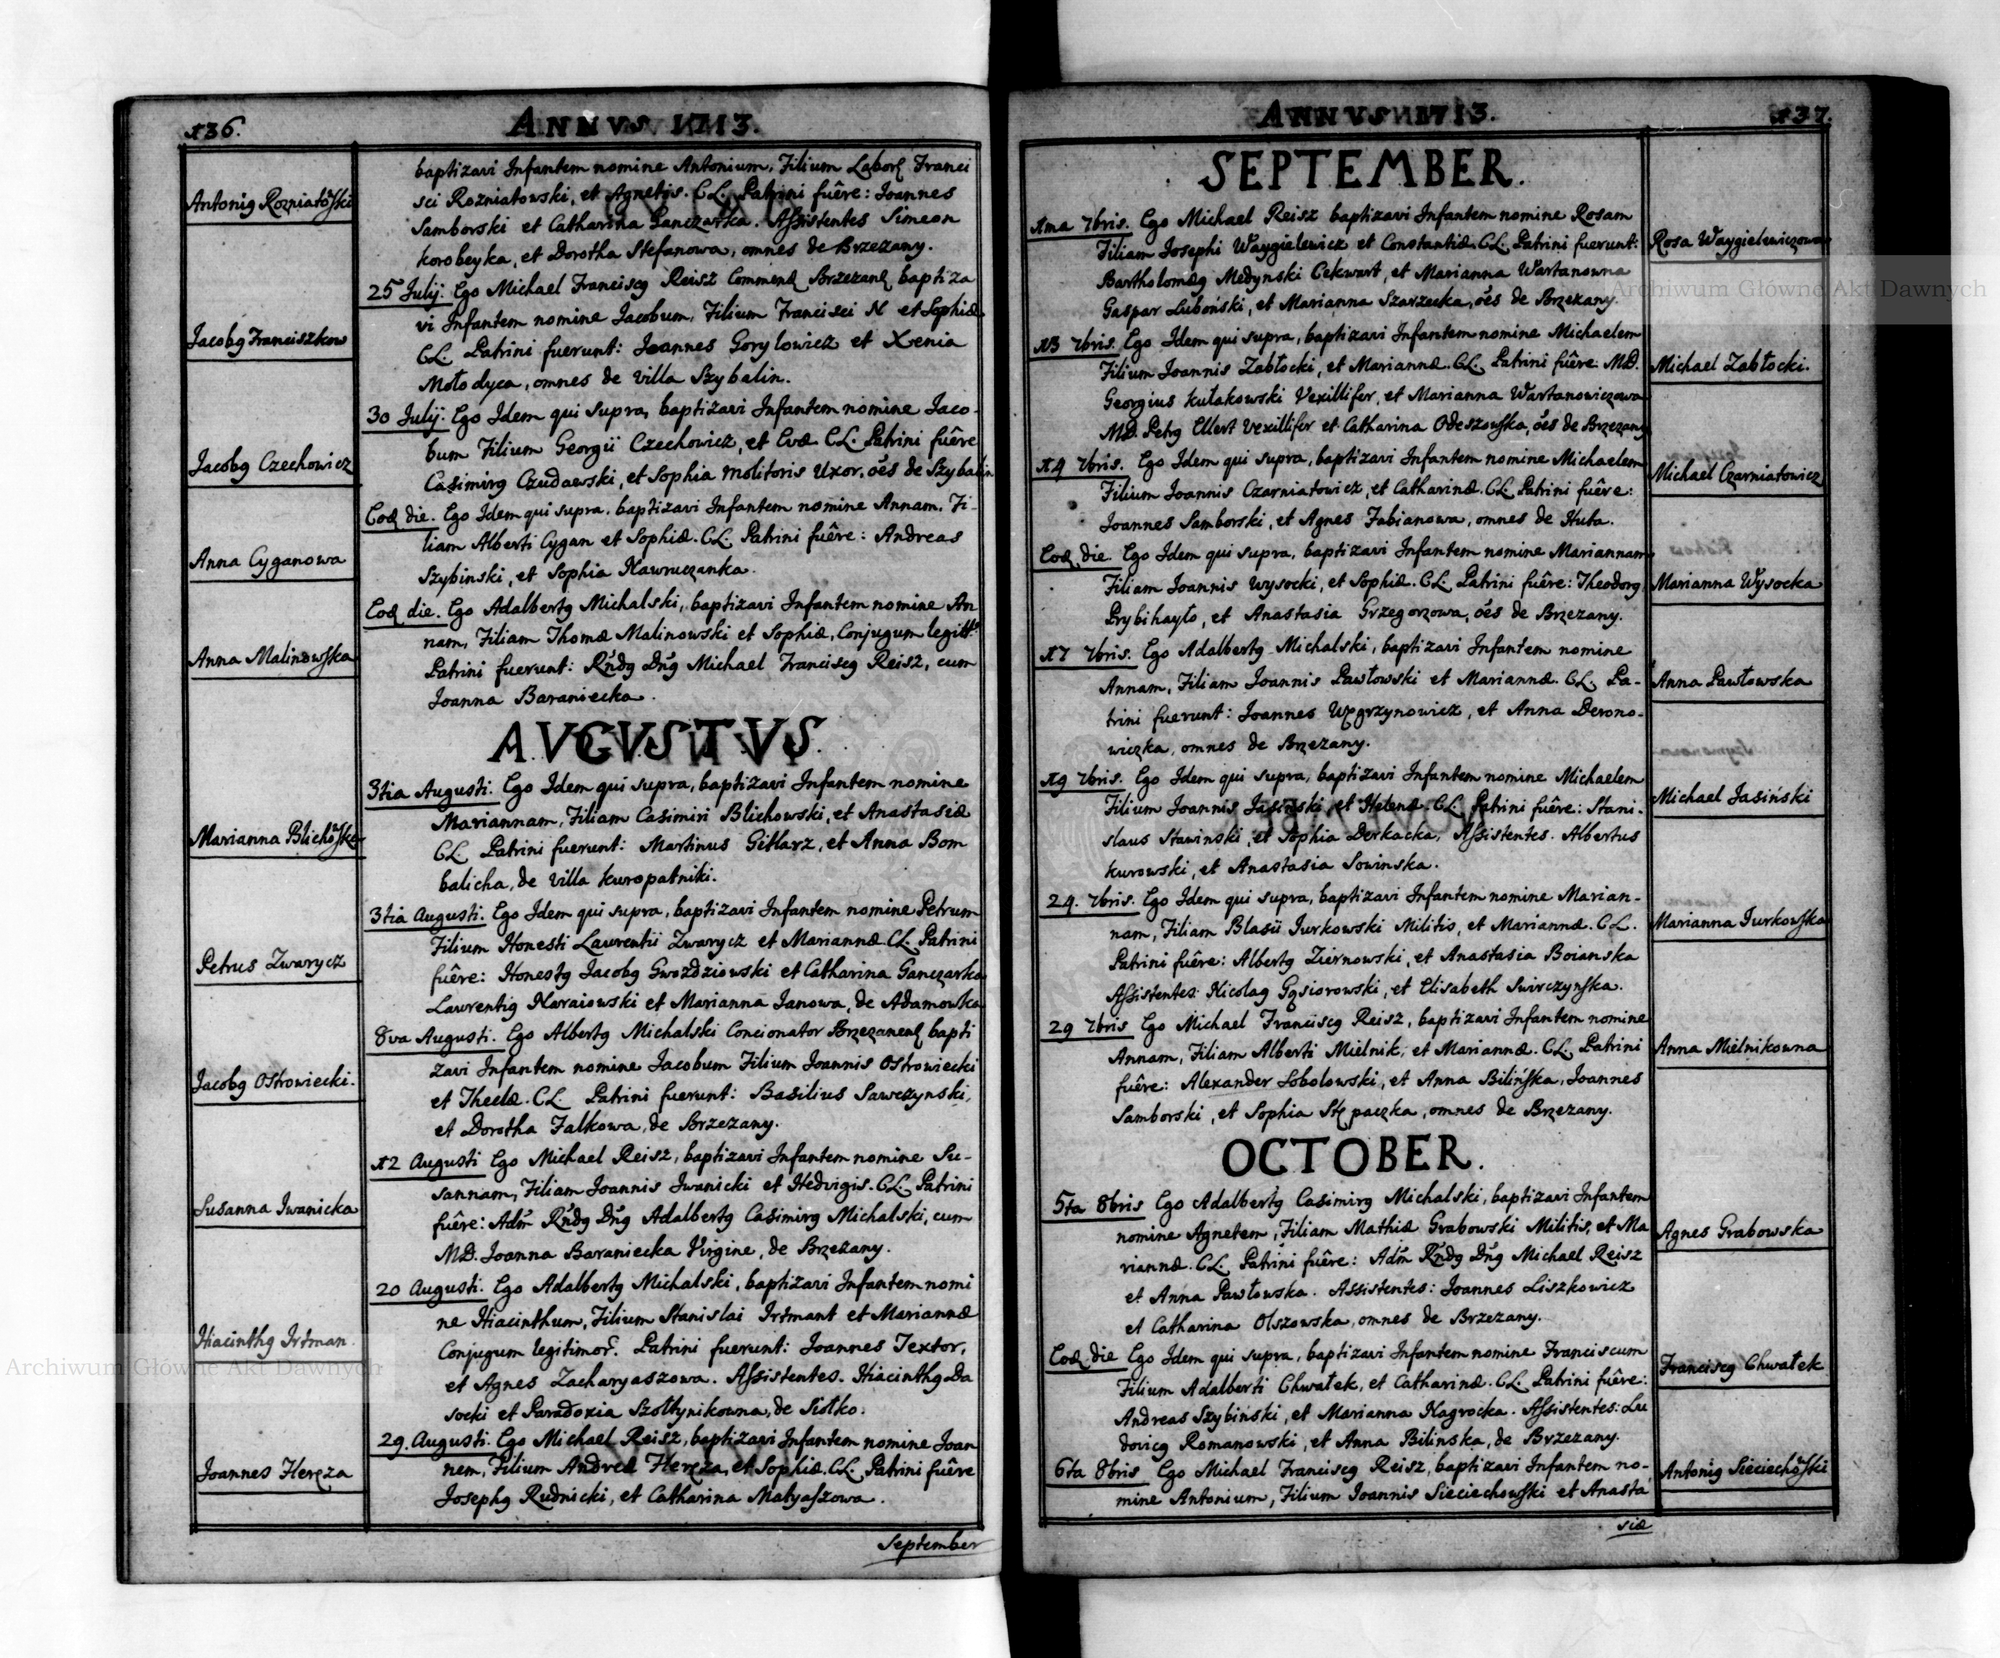 136.
ANNVS 1713.
Antonig Rozniatowski
baptizavi Infantem nomine Antonium, Filium Labor Franci
sci Rozniatowski, et Agnetis. CL. Patrini fuêre: Joannes
Samborski et Catharina Ganczarka. Assistentes Simeon
korobeyka, et Dorotha Stefanowa, omnes de Brzezany.
Jacobg Franciszkow
25 Julij. Ego Michael Franciscg Reisz Commend Brzezan baptiza
vi Infantem nomine Jacobum, Filium Francisci N et Sophiæ
CL. Patrini fuerunt: Joannes Gorylowicz et Xenia
Mołodyca, omnes de villa Szybalin.
Jacobg Czechowicz
30 Julij. Ego Idem qui supra, baptizavi Infantem nomine Jaco-
bum Filium Georgii Czechowicz, et Evæ CL. Patrini fuêre
Casimirg Czudaewski, et Sophia Molitoris Uxor, oẽs de Szybalin
Anna Cyganowa
Eod die. Ego Idem qui supra, baptizavi Infantem nomine Annam, Fi-
liam Alberti Cygan et Sophiæ. CL. Patrini fuêre: Andreas
Szybinski, et Sophia Nawruczanka.
Anna Malinowska
Eod die. Ego Adalbertg Michalski, baptizavi Infantem nomine An
nam, Filiam Thomæ Malinowski et Sophiæ, Conjugum legitt
Patrini fuerunt: Rndg Dng Michael Franciscg Reisz, cum
Joanna Baraniecka.
AVGVSTVS.
Marianna Blichowska
3tia Augusti. Ego Idem qui supra, baptizavi Infantem nomine
Mariannam, Filiam Casimiri Blichowski, et Anastasiæ
CL. Patrini fuerunt: Martinus Gitlarz, et Anna Bom
balicha, de villa kuropatniki.
Petrus Zwarycz
3tia Augusti. Ego Idem qui supra, baptizavi Infantem nomine Petrum
Filium Honesti Laurentii Zwarycz et Mariannæ CL. Patrini
fuêre: Honestg Jacobg Gwozdziowski et Catharina Ganczarka
Laurentig Naraiowski et Marianna Janowa, de Adamowka
Jacobg Ostrowiecki.
8va Augusti. Ego Albertg Michalski Concionator Brzezanen bapti
zavi Infantem nomine Jacobum Filium Joannis Ostrowiecki
et Theclæ. CL. Patrini fuerunt: Basilius Sawczynski,
et Dorotha Falkowa, de Brzezany.
Susanna Iwanicka
12 Augusti Ego Michael Reisz, baptizavi Infantem nomine Su-
sannam, Filiam Joannis Iwanicki et Hedvigis. CL. Patrini
fuêre: Adm Rndg Dng Adalbertg Casimirg Michalski, cum
MD. Joanna Baraniecka Virgine, de Brzezany.
Hiacinthg Irtman.
20 Augusti. Ego Adalbertg Michalski, baptizavi Infantem nomi
ne Hiacinthum, Filium Stanislai Irtmant et Mariannæ
Conjugum legitimor. Patrini fuerunt: Joannes Textor,
et Agnes Zacharyaszowa. Assistentes. Hiacinthg Da
socki et Paradoxia Szołtynikowna, de Siołko.
Joannes Herçza
29. Augusti. Ego Michael Reisz, baptizavi Infantem nomine Joan
nem, Filium Andreæ Herçza, et Sophiæ. CL. Patrini fuêre
Josephg Rudnicki, et Catharina Matyaszowa.
September
ANNVS 1713.
137.
SEPTEMBER.
1ma 7bris. Ego Michael Reisz baptizavi Infantem nomine Rosam
Filiam Josephi Waygielewicz et Constantiæ. CL. Patrini fuerunt:
Bartholomæg Medynski Cekwart, et Marianna Wartanowna
Gaspar Luboński, et Marianna Szarzecka, oẽs de Brzezany.
Rosa Waygielewiczowa
13 7bris. Ego Idem qui supra, baptizavi Infantem nomine Michaelem
Filium Joannis Zabłocki, et Mariannæ. CL. Patrini fuêre MD.
Georgius kułakowski Vexillifer, et Marianna Wartanowiczowa
MD. Petrg Ellert Vexillifer et Catharina Odeszowska, oẽs de Brzezany
Michael Zabłocki.
14 7bris. Ego Idem qui supra, baptizavi Infantem nomine Michaelem
Filium Joannis Czarniatowicz, et Catharinæ. CL. Patrini fuêre:
Joannes Samborski, et Agnes Fabianowa, omnes de Huta.
Michael Czarniatowicz
Eod die Ego Idem qui supra, baptizavi Infantem nomine Mariannam
Filiam Joannis Wysocki, et Sophiæ. CL. Patrini fuêre: Theodorg
Prybihayło, et Anastasia Grzegorzowa, oẽs de Brzezany.
Marianna Wysocka
17 7bris. Ego Adalbertg Michalski, baptizavi Infantem nomine
Annam, Filiam Joannis Pawłowski et Mariannæ. CL. Pa-
trini fuerunt: Joannes Węgrzynowicz, et Anna Derono-
wiczka, omnes de Brzezany.
Anna Pawłowska
19 7bris. Ego Idem qui supra, baptizavi Infantem nomine Michaelem
Filium Joannis Jasinski et Helenæ. CL. Patrini fuêre: Stani-
slaus Stawinski, et Sophia Derkacka, Assistentes. Albertus
kurowski, et Anastasia Sowinska.
Michael Jasiński
24. 7bris. Ego Idem qui supra, baptizavi Infantem nomine Marian-
nam, Filiam Blasii Jurkowski Militis, et Mariannæ. CL.
Patrini fuêre: Albertg Ziernowski, et Anastasia Boianska
Assistentes: Nicolag Gąsiorowski, et Elisabeth Swirczynska.
Marianna Jurkowska
29 7bris Ego Michael Franciscg Reisz, baptizavi Infantem nomine
Annam, Filiam Alberti Mielnik, et Mariannæ. CL. Patrini
fuêre: Alexander Sobolowski, et Anna Bilińska, Joannes
Samborski, et Sophia Stępaczka, omnes de Brzezany.
Anna Mielnikowna
OCTOBER.
5ta 8bris Ego Adalbertg Casimirg Michalski, baptizavi Infantem
nomine Agnetem, Filiam Mathiæ Grabowski Militis, et Ma
riannæ. CL. Patrini fuêre: Adm Rndg Dng Michael Reisz
et Anna Pawłowska. Assistentes: Joannes Liszkowicz
et Catharina Olszowska, omnes de Brzezany.
Agnes Grabowska
Eod die Ego Idem qui supra, baptizavi Infantem nomine Franciscum
Filium Adalberti Chwałek, et Catharinæ. CL. Patrini fuêre:
Andreas Szybiński, et Marianna Nagrocka. Assistentes: Lu
dovicg Romanowski, et Anna Bilinska, de Brzezany.
Franciscg Chwałek
6ta 8bris Ego Michael Franciscg Reisz, baptizavi Infantem no-
mine Antonium, Filium Joannis Sieciechowski et Anasta
Antonig Sieciechowski
siæ
Archiwum Główne Akt Dawnych
Archiwum Główne Akt Dawnych